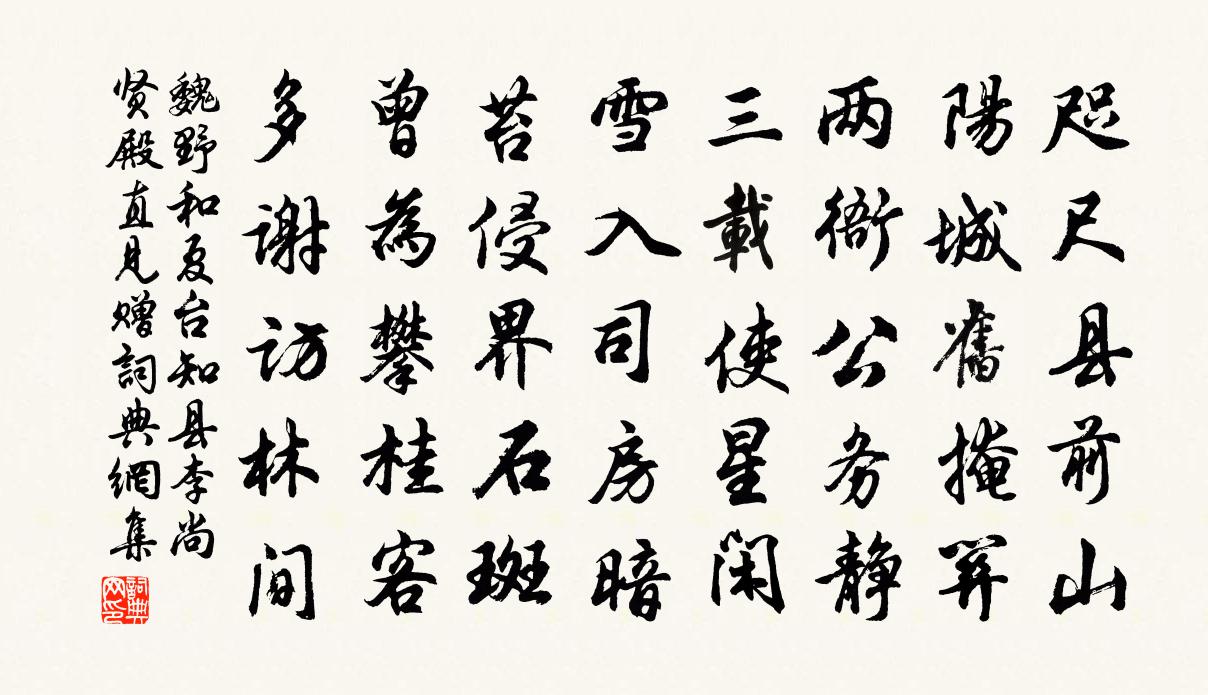 咫尺县前山
陽城舊掩關
两衙公务静
三載使星閑
雪入司房暗
苔侵界石斑
曾為攀桂客
多謝訪林間
魏野和夏台知县李尚
贤殿直見赠詞典網集